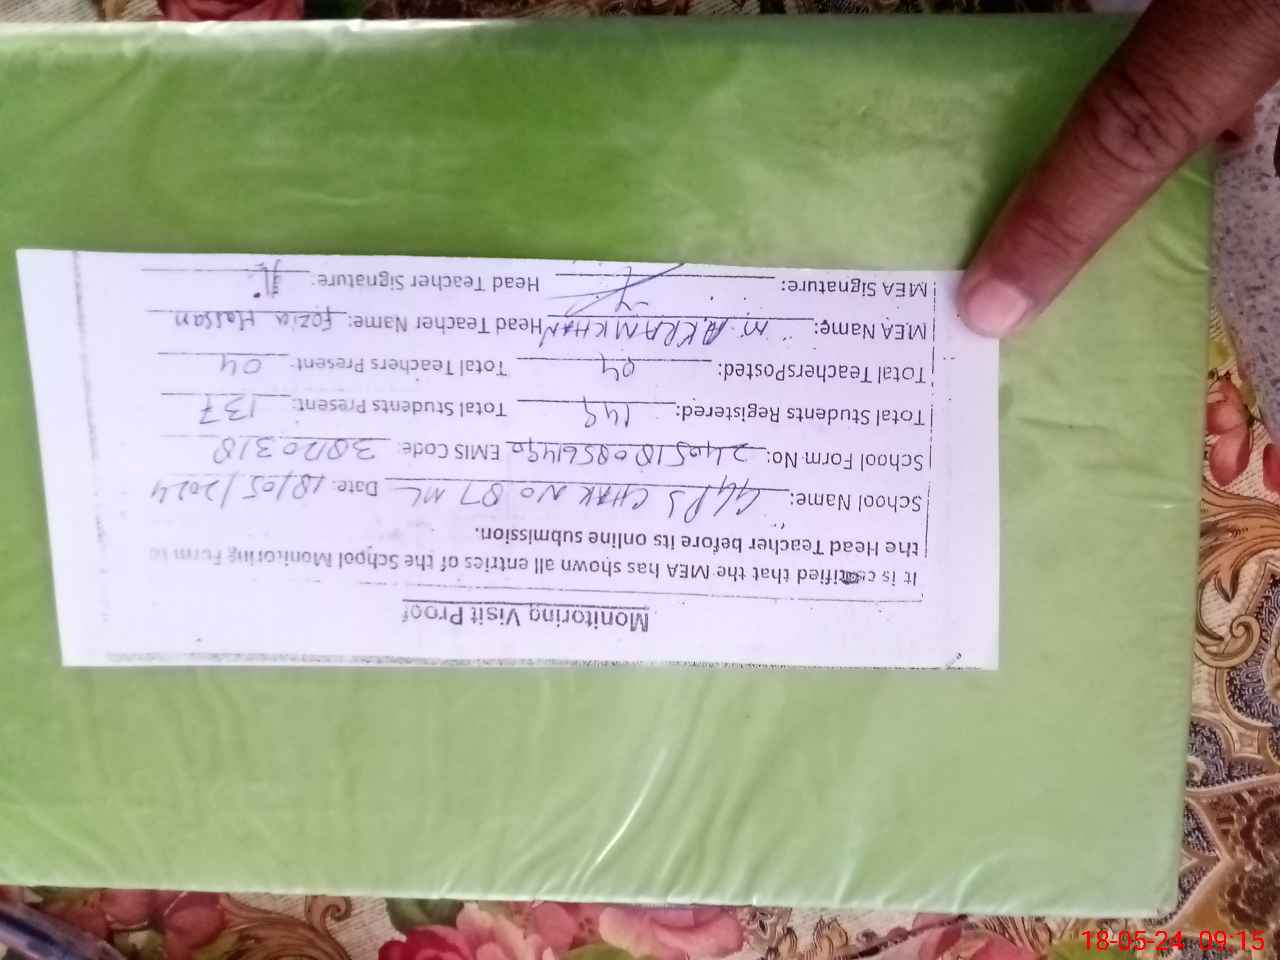 Monitoring Visit Proof
It is certified that the MEA has shown all entries of the School Monitoring Form to
the Head Teacher before its online submission.
School Name: GGPS CHAK NO 87 ML Date: 18/05/2024
School Form No: EMIS Code: 38120318
Total Students Registered: 149 Total Students Present: 137
Total TeachersPosted: 04 Total Teachers Present: 04
MEA Name: M. AKRAM KHAN Head Teacher Name: Fozia Hassan
MEA Signature: Head Teacher Signature:
18-05-24 09:15